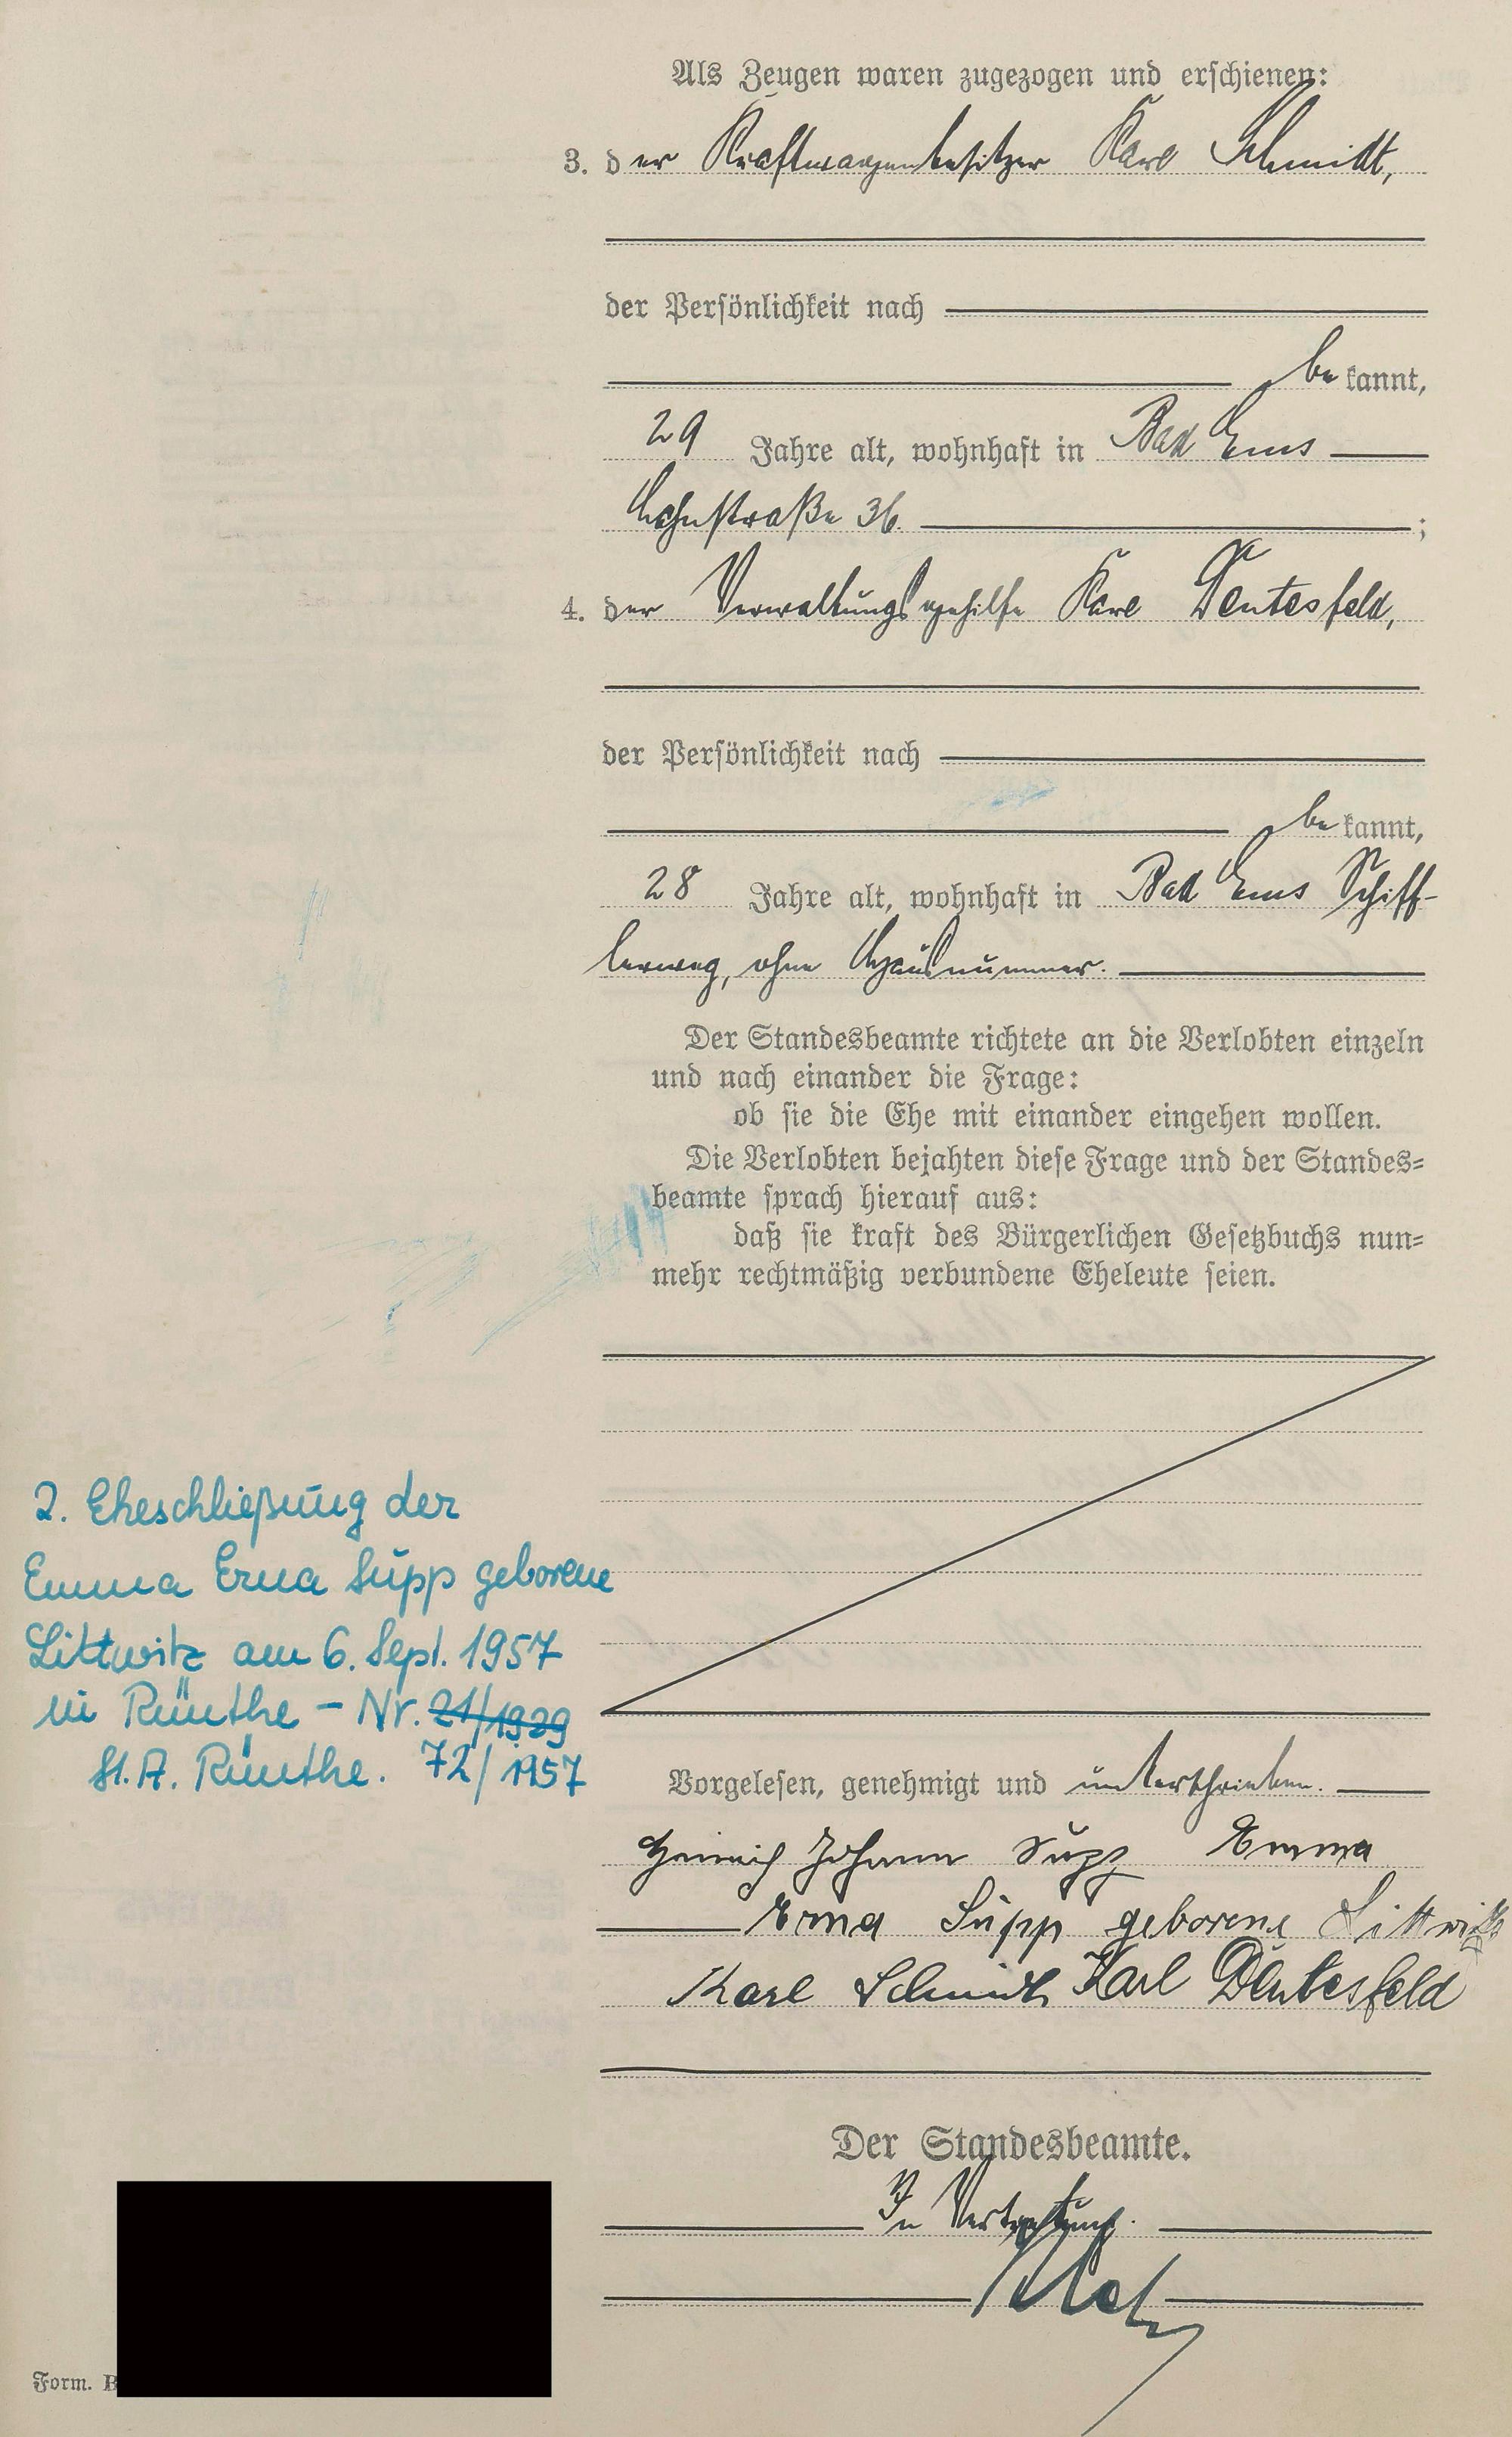 Als Zeugen waren zugezogen und erschienen:
3. der Kraftwagenbesitzer Karl Schmidt,
der Persönlichkeit nach
bekannt,
29 Jahre alt, wohnhaft in Bad Ems
Lahnstraße 36. ;
4. der Verwaltungsgehilfe Karl Deutesfeld,
der Persönlichkeit nach
bekannt,
28 Jahre alt, wohnhaft in Bad Ems Schiff-
lerweg, ohne Hausnummer.
Der Standesbeamte richtete an die Verlobten einzeln
und nach einander die Frage:
ob sie die Ehe mit einander eingehen wollen.
Die Verlobten bejahten diese Frage und der Standes=
beamte sprach hierauf aus:
daß sie kraft des Bürgerlichen Gesetzbuchs nun=
mehr rechtmäßig verbundene Eheleute seien.
2. Eheschließung der
Emma Erna Supp geborene
Littwitz am 6. Sept. 1957
in Rünthe – Nr. 21/1929
St. A. Rünthe. 72/1957
Vorgelesen, genehmigt und unterschrieben.
Heinrich Johann Supp Emma
Erna Supp geborene Littwitz
Karl Schmidt Karl Deutesfeld
Der Standesbeamte.
In Vertretung.
Form. B